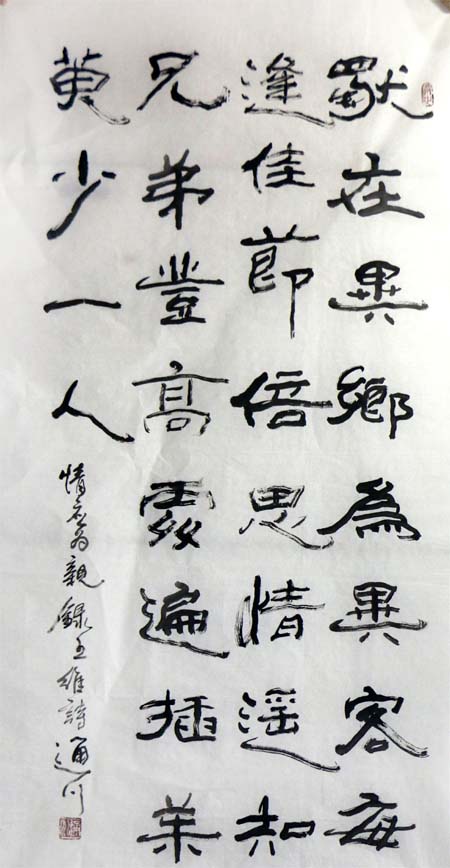 獨在異鄉為異客每
逢佳節倍思情遙知
兄弟豐高處遍插茱
萸少一人
情应为親錄王維詩通川